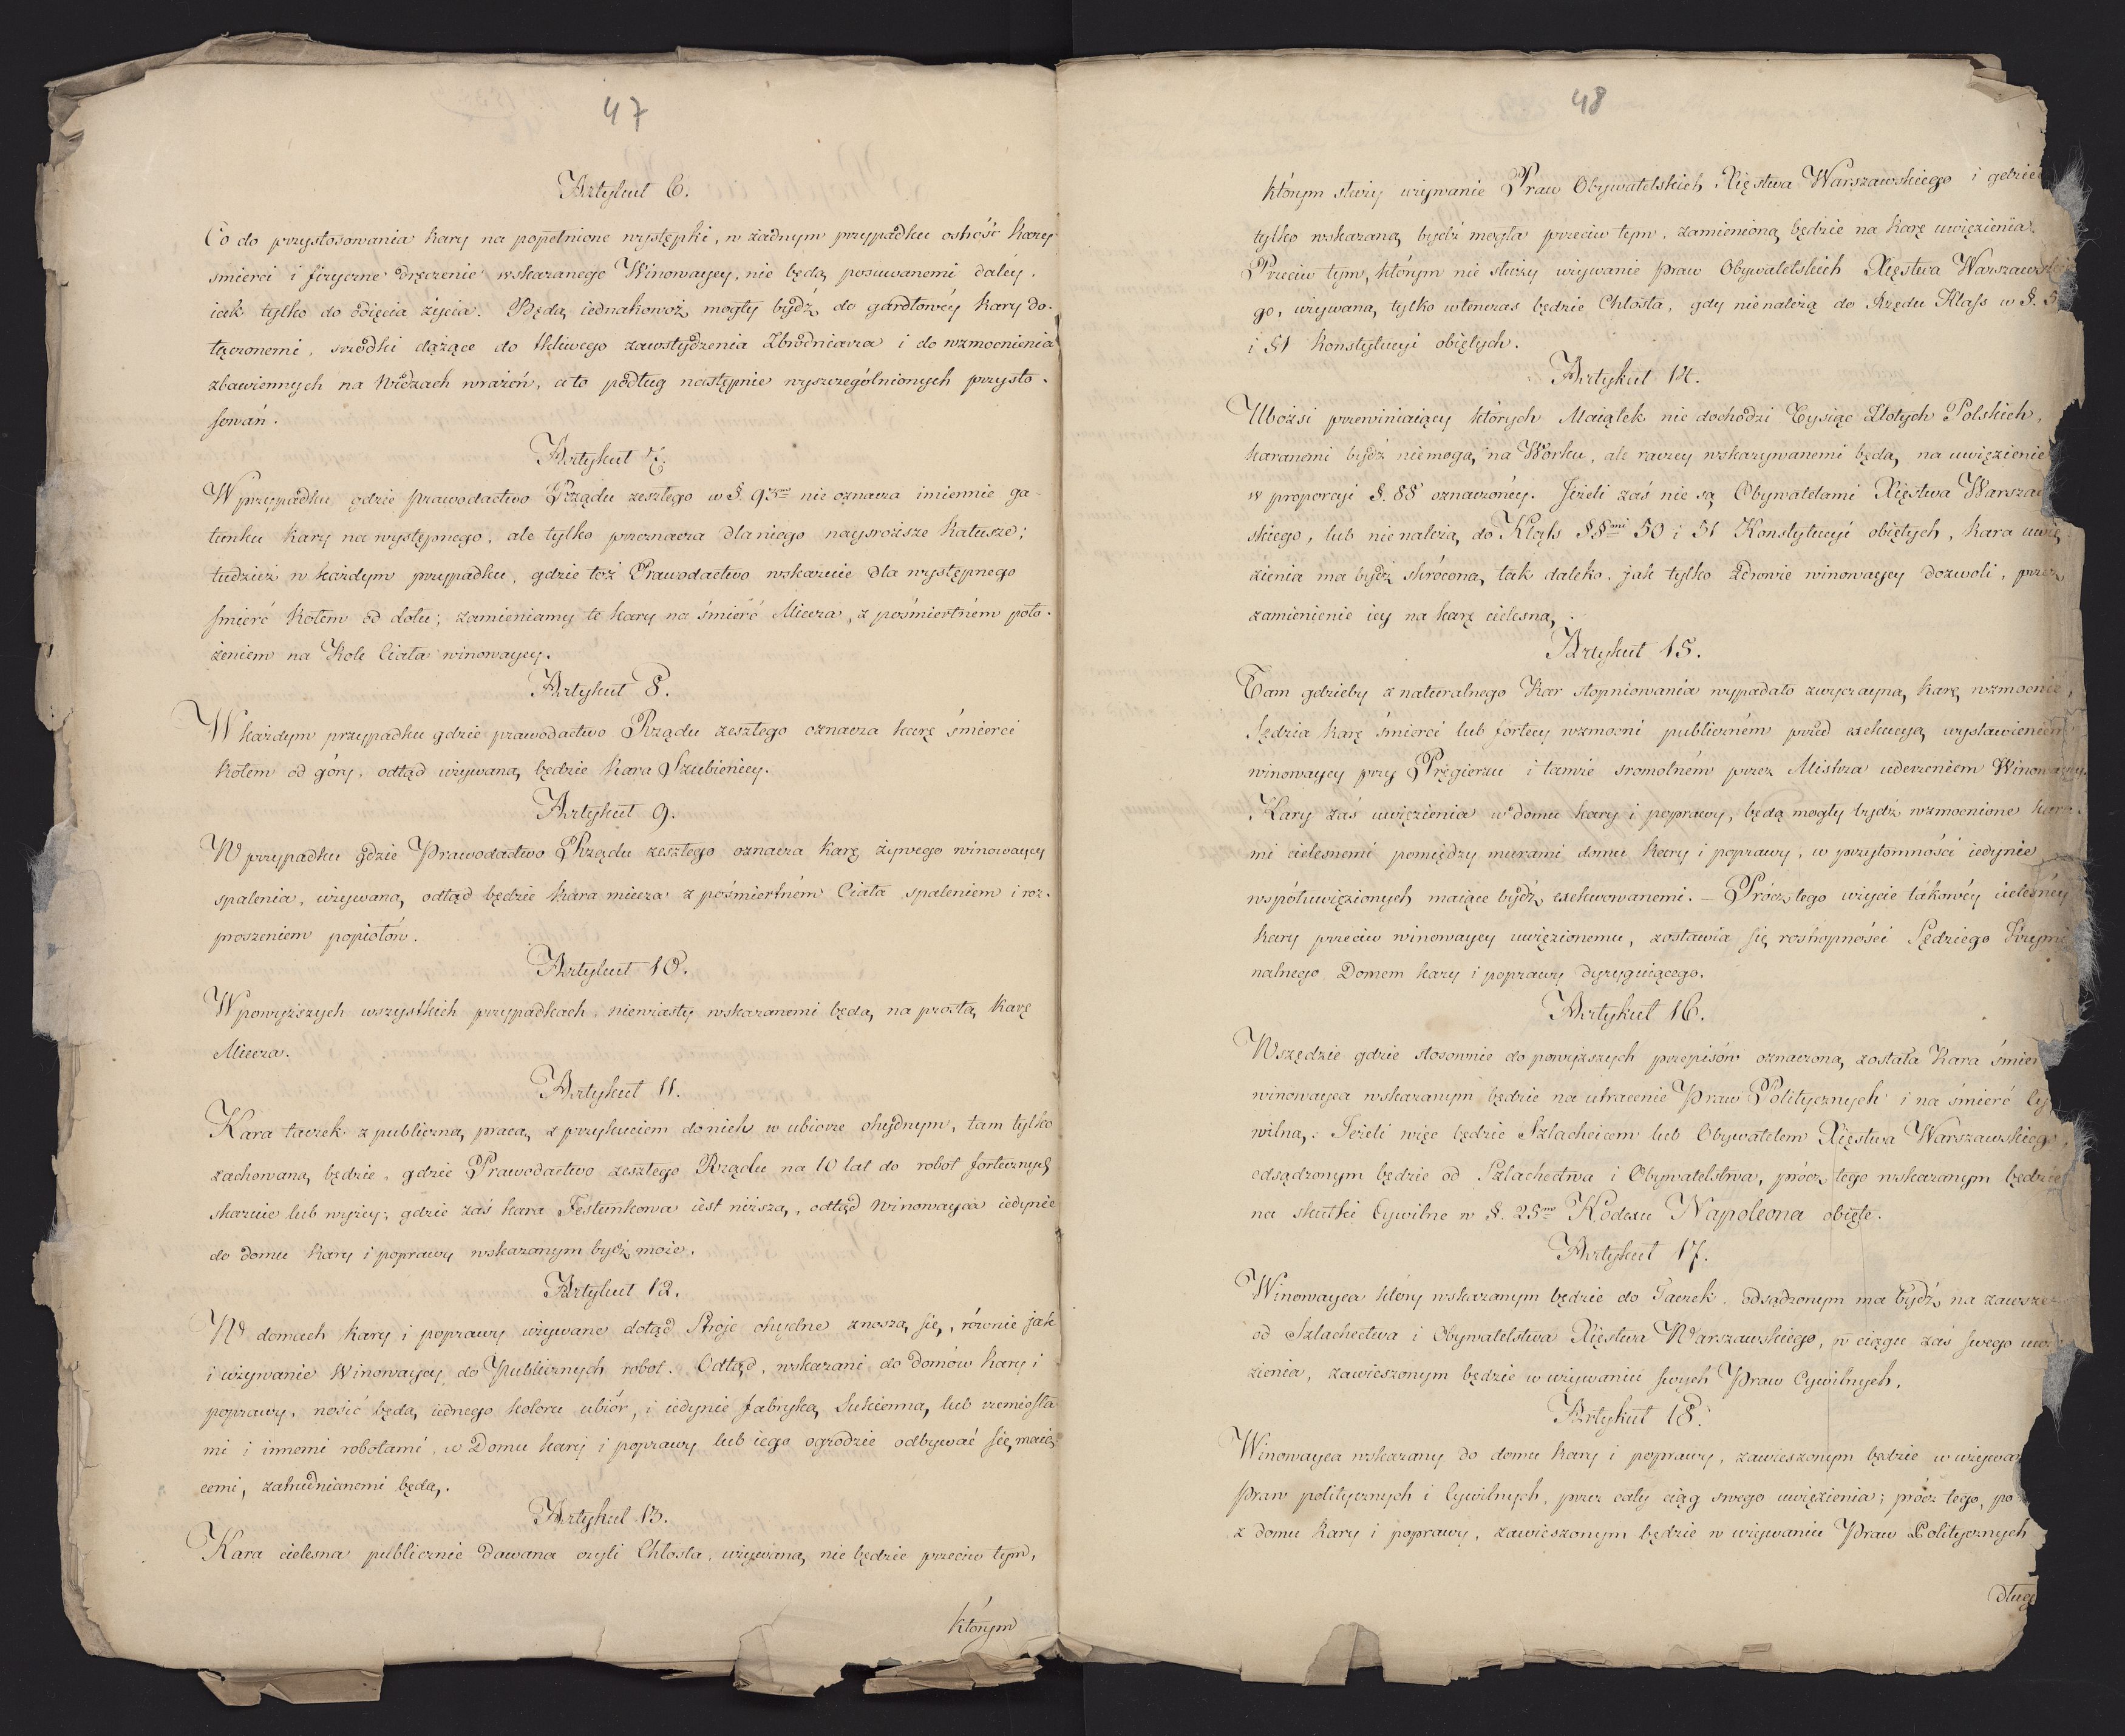 47
Artykuł 6.
Co do przystosowania kary na popełnione występki, w żadnym przypadku ostrość karey
śmierci i fizyczne dręczenie wskazanego Winowaycy, nie będą posuwanemi daléy,
iak tylko do odięcia życia. Będą iednakowoż mogły bydź do gardłowéy kary do-
łączonemi, srzodki dążące do tkliwego zawstydzenia Zbrodniarza i do wzmocnienia
zbawiennych na Widzach wrażeń, a to podług następnie wyszczególnionych przysto-
sowań.
Artykuł 7.
W przypadku, gdzie prawodactwo Rządu zeszłego w §. 93m nie oznacza imiennie ga-
tunku kary na występnego, ale tylko przeznacza dla niego naysroższe Katusze;
tudzież w każdym przypadku, gdzie toż Prawodactwo wskazuie dla występnego
śmierć Kołem od dołu; zamieniamy te kary na śmierć Miecza, z pośmiertném poło-
żeniem na Kole Ciała winowaycy.
Artykuł 8.
W każdym przypadku gdzie prawodactwo Rządu zeszłego oznacza karę śmierci
kołem od góry, odtąd używaną będzie kara Szubienicy.
Artykuł 9.
W przypadku gdzie Prawodactwo Rządu zeszłego oznacza karę żywego winowaycy
spalenia, używaną odtąd będzie kara miecza z pośmiertném Ciała spaleniem i roz-
proszeniem popiołów.
Artykuł 10.
W powyższych wszystkich przypadkach, niewiasty wskazanemi będą na prostą karę
Miecza.
Artykuł 11.
Kara taczek z publiczną pracą, z przykuciem do nich w ubiorze ohydnym, tam tylko
zachowaną będzie, gdzie Prawodactwo zeszłego Rządu na 10 lat do robot fortecznych
skazuie lub wyżey; gdzie zaś kara Festunkowa iest niższą, odtąd Winowayca iedynie
do domu kary i poprawy wskazanym bydź może.
Artykuł 12.
W domach kary i poprawy używane dotąd Stroje ohydne znoszą się, równie jak
i używanie Winowaycy do Publicznych robot. Odtąd, wskazani do domów kary i
poprawy, nosić będą iednego koloru ubiór, i iedynie fabryką Sukienną, lub rzemiosła-
mi i innemi robotami, w Domu kary i poprawy lub iego ogrodzie odbywać się maią-
cemi, zatrudnianemi będą.
Artykuł 13.
Kara cielesna publicznie dawana czyli Chłosta, używaną nie będzie przeciw tym,
którym
48
którym służy używanie Praw Obywatelskich Xięstwa Warszawskiego i gdzie
tylko wskazaną bydź mogła przeciw tym, zamienioną będzie na karę uwięzienia.
Przeciw tym, którym nie służy używanie praw Obywatelskich Xięstwa Warszawskie
go, używaną tylko wtenczas będzie Chłosta, gdy nie należą do Rzędu Klass w §.
i 51 Konstytucyi obiętych.
Artykuł 14.
Ubożsi przewiniaiący których Maiątek nie dochodzi Tysiąc Złotych Polskich,
karanemi bydź niemogą na Worku, ale raczey wskazywanemi będą na uwięzienie
w proporcyi §. 88 oznaczonéy. Jeżeli zaś nie są Obywatelami Xięstwa Warszaw
skiego, lub nie należą do Klass §§mi 50 i 51 Konstytucyi obiętych, kara uwię
zienia ma bydź skróconą, tak daleko, jak tylko Zdrowie winowaycy dozwoli, przez
zamienienie iey na karę cielesną.
Artykuł 15.
Tam gdzieby z naturalnego Kar stopniowania wypadało zwyczayną karę wzmocnić,
Sędzia karę śmierci lub fortecy wzmocni publiczném przed exekucyą wystawieniem
winowaycy przy Pręgierzu i tamże sromotném przez Mistrza uderzeniem Winowaycy.
Kary zaś uwięzienia w domu kary i poprawy, będą mogły bydź wzmocnione kara-
mi cielesnemi pomiędzy murami domu kary i poprawy, w przytomności iedynie
współuwięzionych maiące bydź exekwowanemi. – Prócz tego użycie takowéy cielesnéy
kary przeciw winowaycy uwięzionemu, zostawia się rostropności Sędziego Krymi
nalnego Domem kary i poprawy dyryguiącego.
Artykuł 16.
Wszędzie gdzie stosownie do powyższych przepisów oznaczoną została Kara śmier
winowayca wskazanym będzie na utracenie Praw Politycznych i na śmierć Cy
wilną. Jeżeli więc będzie Szlachcicem lub Obywatelem Xięstwa Warszawskiego,
odsądzonym będzie od Szlachectwa i Obywatelstwa, prócz tego wskazanym będzie
na skutki Cywilne w §. 25m Kodexu Napoleona obięte.
Artykuł 17.
Winowayca który wskazanym będzie do Taczek, odsądzonym ma bydź na zawsze
od Szlachectwa i Obywatelstwa Xięstwa Warszawskiego, w ciągu zaś swego uwię
zienia, zawieszonym będzie w używaniu swych Praw Cywilnych.
Artykuł 18.
Winowayca wskazany do domu kary i poprawy, zawieszonym będzie w używa
Praw politycznych i Cywilnych, przez cały ciąg swego uwięzienia; prócz tego, po
z domu kary i poprawy, zawieszonym będzie w używaniu Praw Politycznych
dług